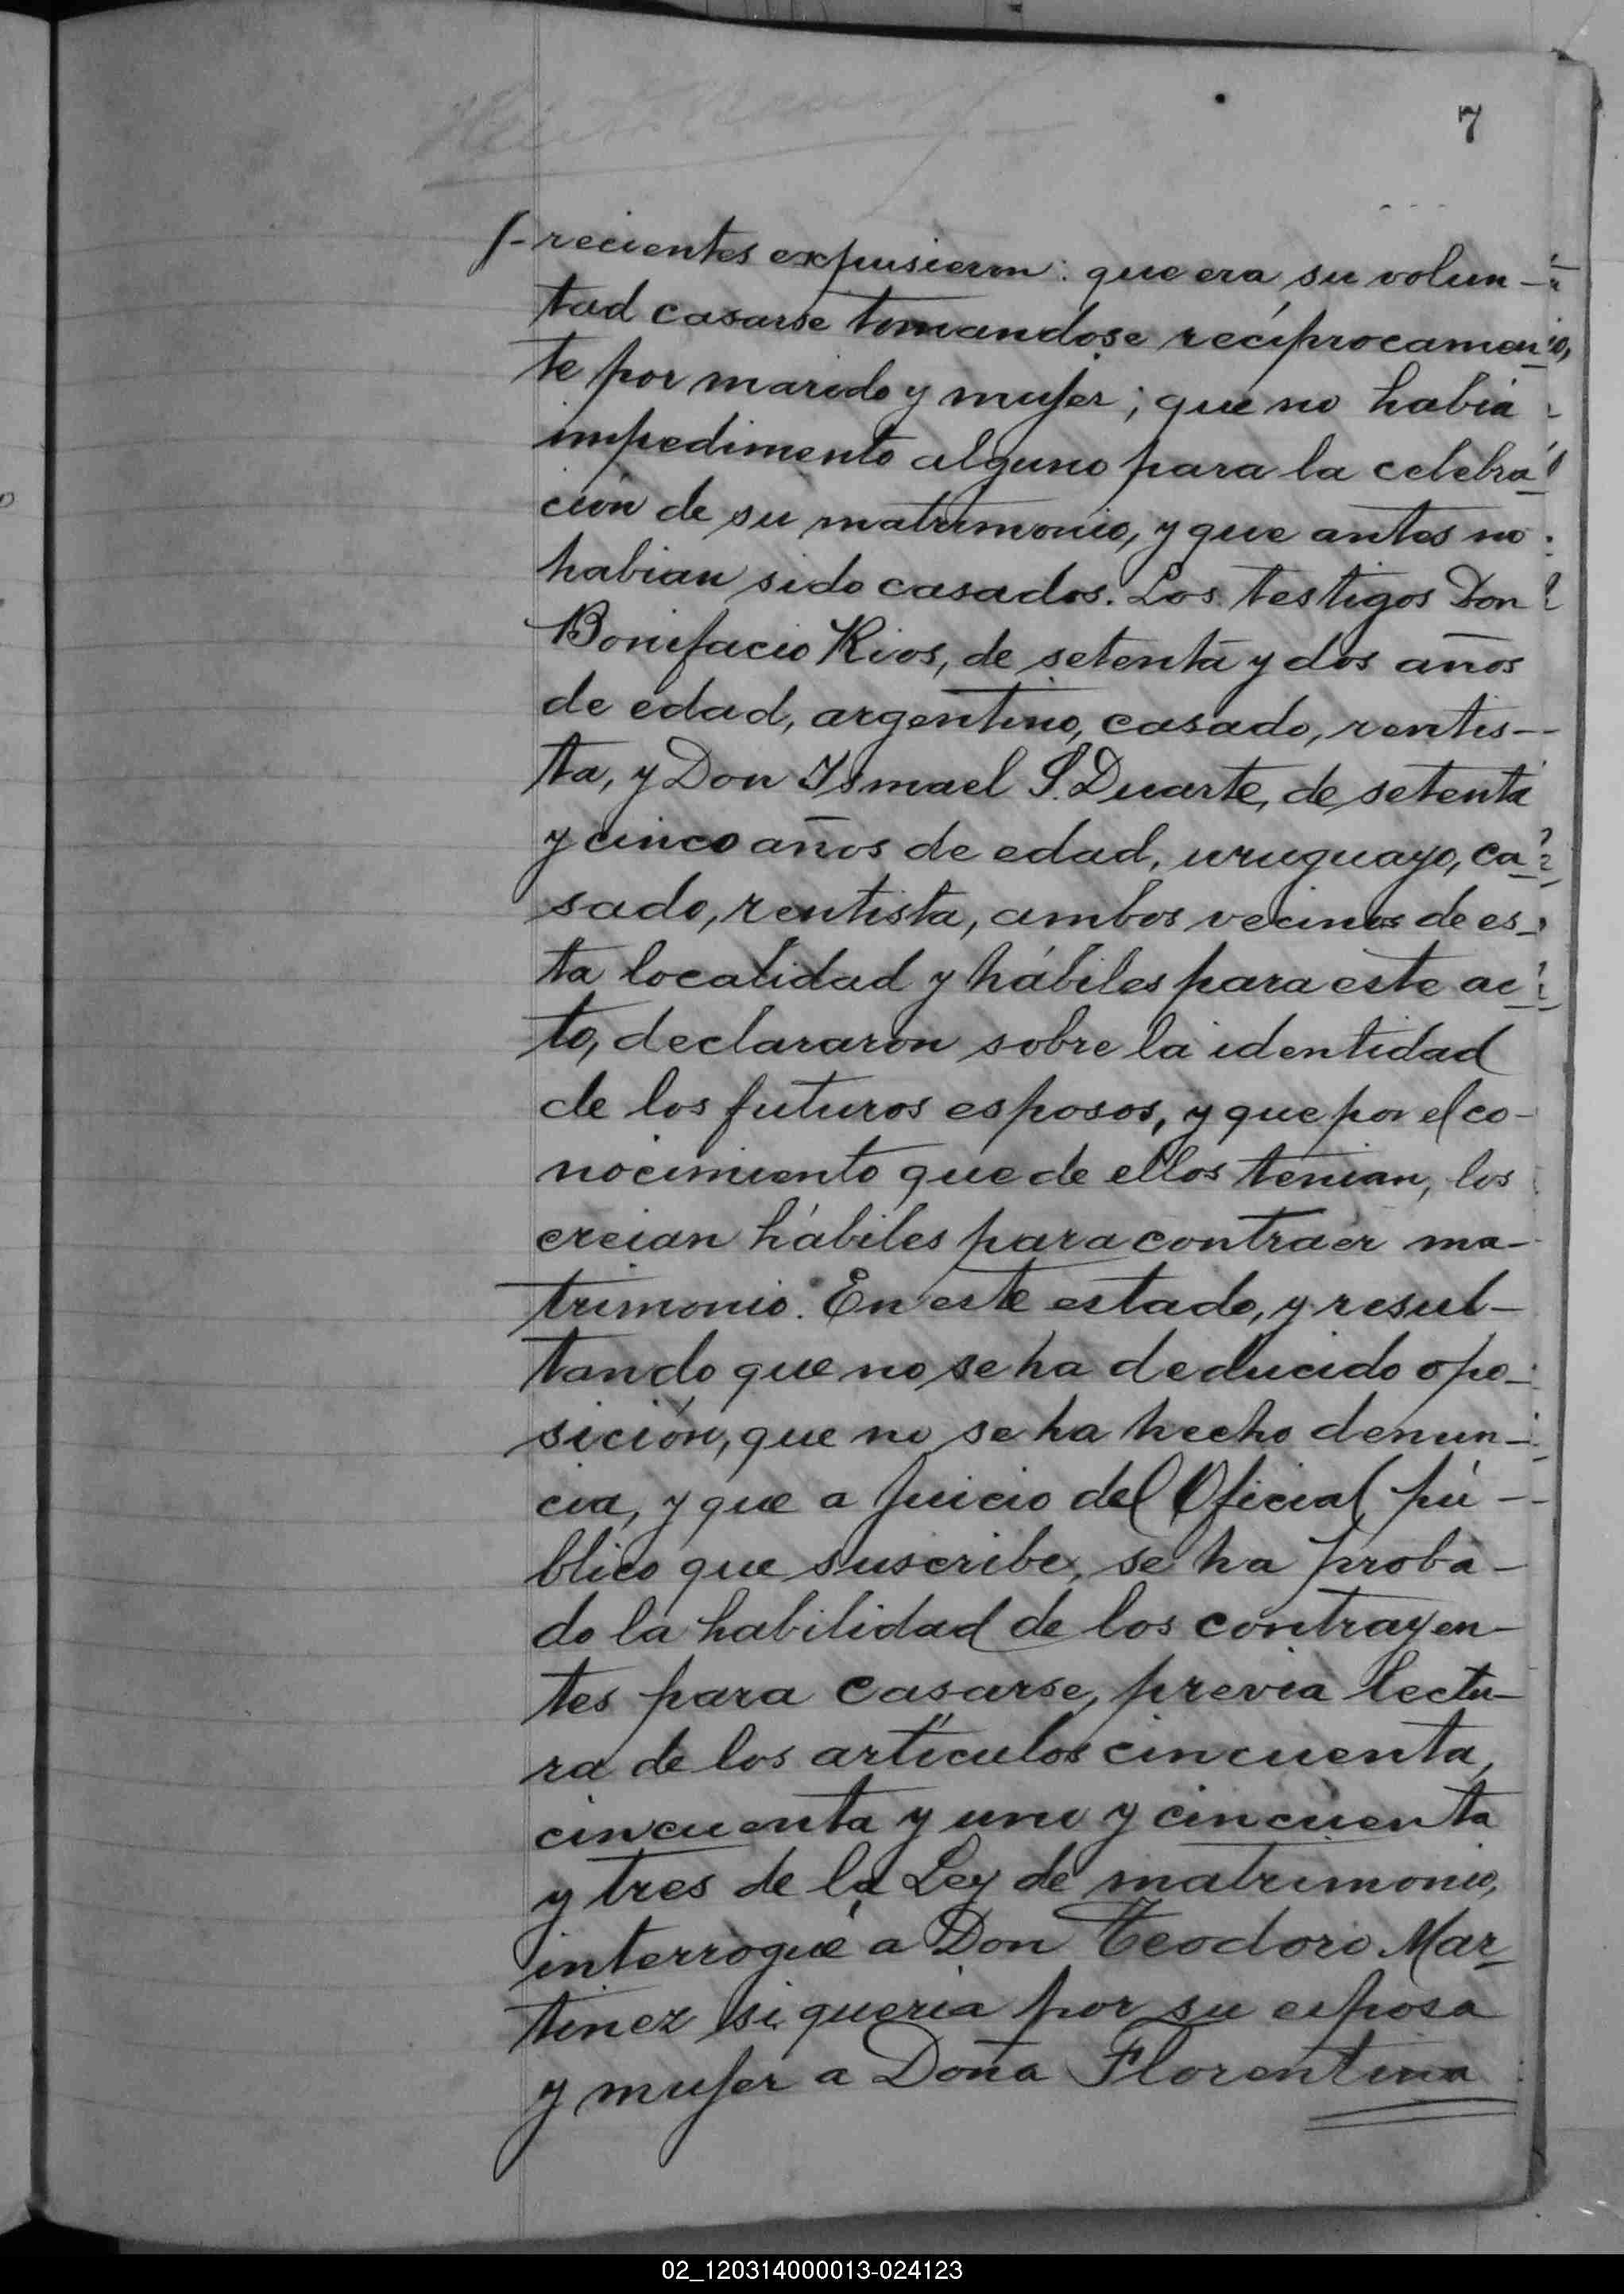 7
recientes expusieron: que era su volun-
tad casarse tomandose recíprocamen
te por marido y mujer; que no había
impedimento alguno para la celebra
ción de su matrimonio, y que antes no
habian sido casados. Los testigos Don
Bonifacio Rios, de setenta y dos años
de edad, argentino, casado, rentis-
ta, y Don Ismael S. Duarte, de setenta
y cinco años de edad, uruguayo, ca
sado, rentista, ambos vecinos de es-
ta localidad y hábiles para este ac
to, declararon sobre la identidad
de los futuros esposos, y que por el co-
nocimiento que de ellos tenian, los
creian hábiles para contraer ma-
trimonio. En este estado, y resul-
tando que no se ha deducido opo-
sición, que no se ha hecho denun-
cia, y que a juicio del Oficial pú-
blico que suscribe, se ha proba-
do la habilidad de los contrayen-
tes para casarse, previa lectu-
ra de los artículos cincuenta,
cincuenta y uno y cincuenta
y tres de la Ley de matrimonio,
interrogué a Don Teodoro Mar-
tinez si queria por su esposa
y mujer a Doña Florentina
02_120314000013-024123